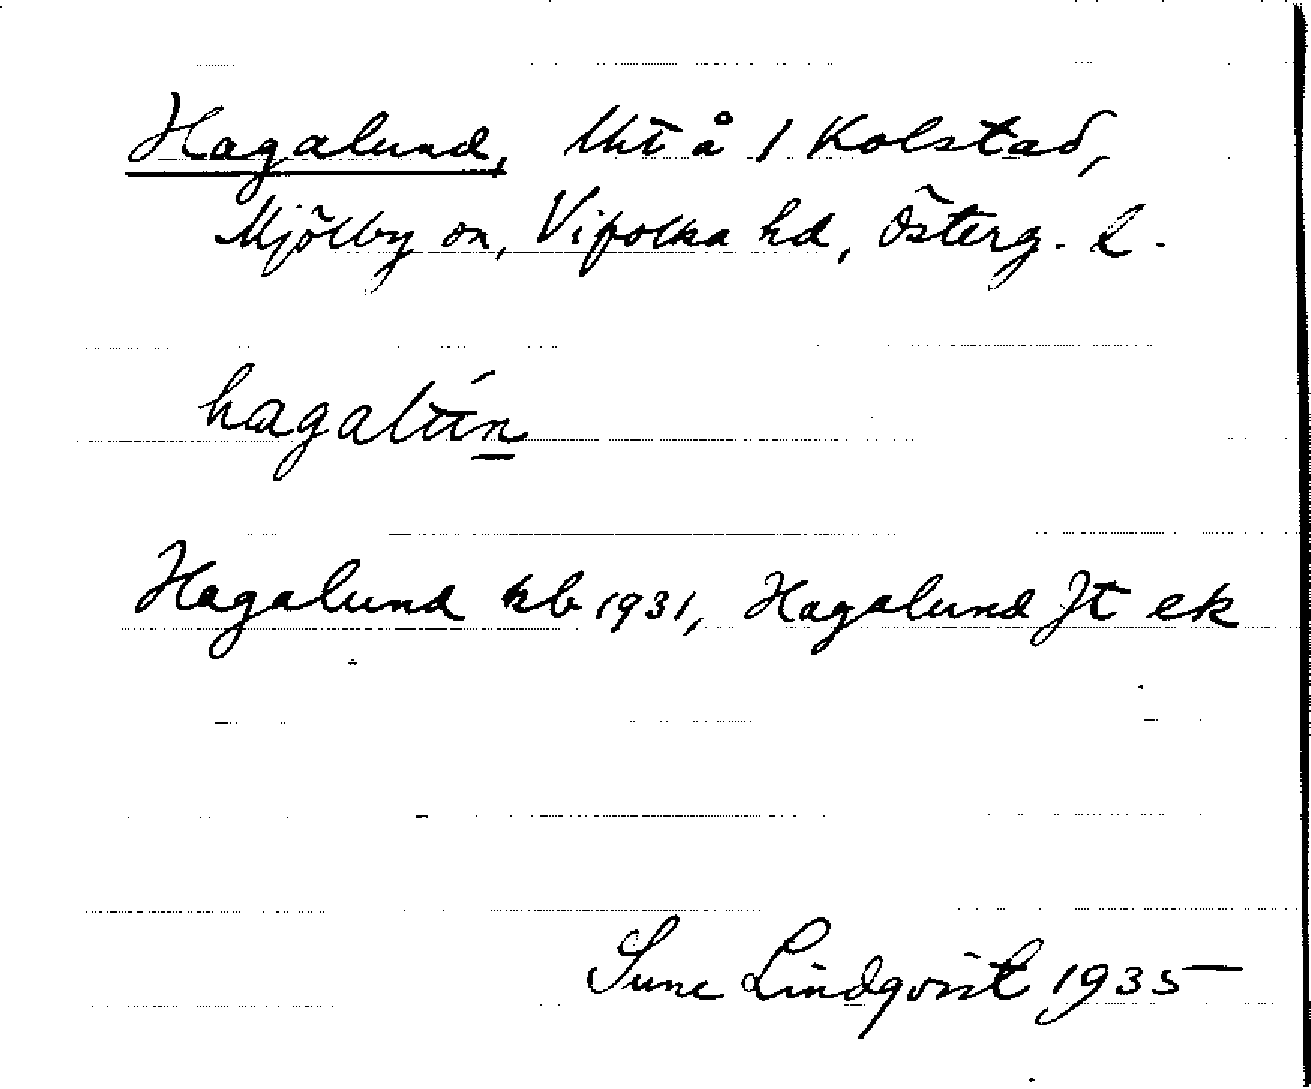 Hagalund, Uht å 1 Kolstad,
Mjölby sn, Vifolka hd, Österg. l.
hagalún
Hagalund kb 1931, Hagalund Jt ek
Sune Lindqvist 1935